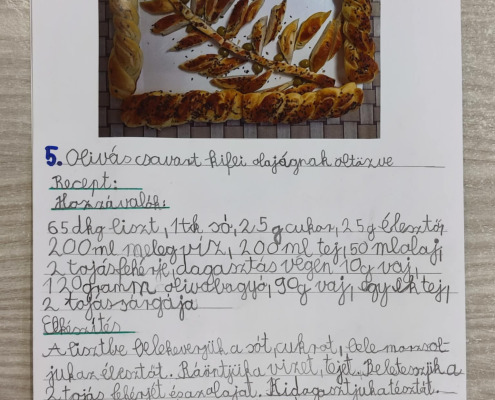 5. Olivás csavart kifli olajágnak öltözve
Recept:
Hozzávalók:
65 dkg liszt, 1tk só, 25 g cukor, 25g élesztő,
200 ml meleg víz, 200 ml tej, 50 ml olaj,
2 tojásfehérje, dagasztás végén 10g vaj,
120 gramm olivabogyó, 90g vaj, egy ek tej,
2 tojás sárgája
Elkészítés
A lisztbe belekeverjük a sót, cukrot, bele morzsol
juk az élesztőt. Ráöntjük a vizet, tejet. Beletesszük a
2 tojás fehérjét és az olajat. Kidagasztjuk a tésztát.